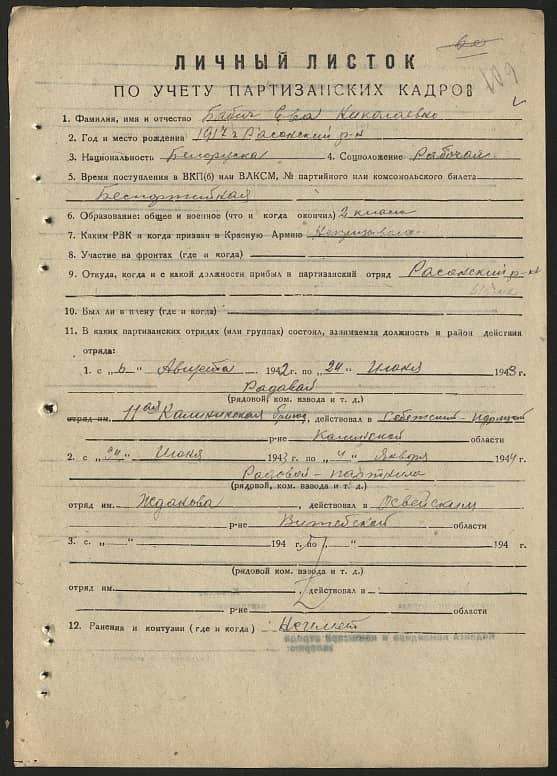 ЛИЧНЫЙ ЛИСТОК
ПО УЧЕТУ ПАРТИЗАНСКИХ КАДРОВ
1. Фамилия, имя и отчество Бабич Ева Николаевна
2. Год и место рождения 1917 г Расонский р-н
3. Национальность Белоруска 4. Соцположение Рабочая
5. Время поступления в ВКП(б) или ВЛКСМ, № партийного или комсомольского билета
Беспартийная
6. Образование: общее и военное (что и когда окончил) 2 класса
7. Каким РВК и когда призван в Красную Армию Непризывалась
8. Участие на фронтах (где и когда)
9. Откуда, когда и с какой должности прибыл в партизанский отряд Расонский р-н
10. Был ли в плену (где и когда)
11. В каких партизанских отрядах (или группах) состоял, занимаемая должность и район действия
отряда:
1. с „6" Августа 1942 г по „24" Июня 1943 г.
Радавай
(рядовой, ком. взвода и т. д.)
отряд им. 11ая Калининская бригад, действовал в Себежский-Идрицкой
р-не Калинской области
2. с „24" Июня 1943 г. по „4" Января 1944 г.
Радовой-
(рядовой, ком. взвода и т. д.)
отряд им. Жданова, действовал в Освейскам
р-не Витебской области
3. с „ " 194 г. по „ " 194 г.
(рядовой, ком. взвода и т. д.)
отряд им. действовал в
р-не области
12. Ранения и контузии (где и когда) Неимеет